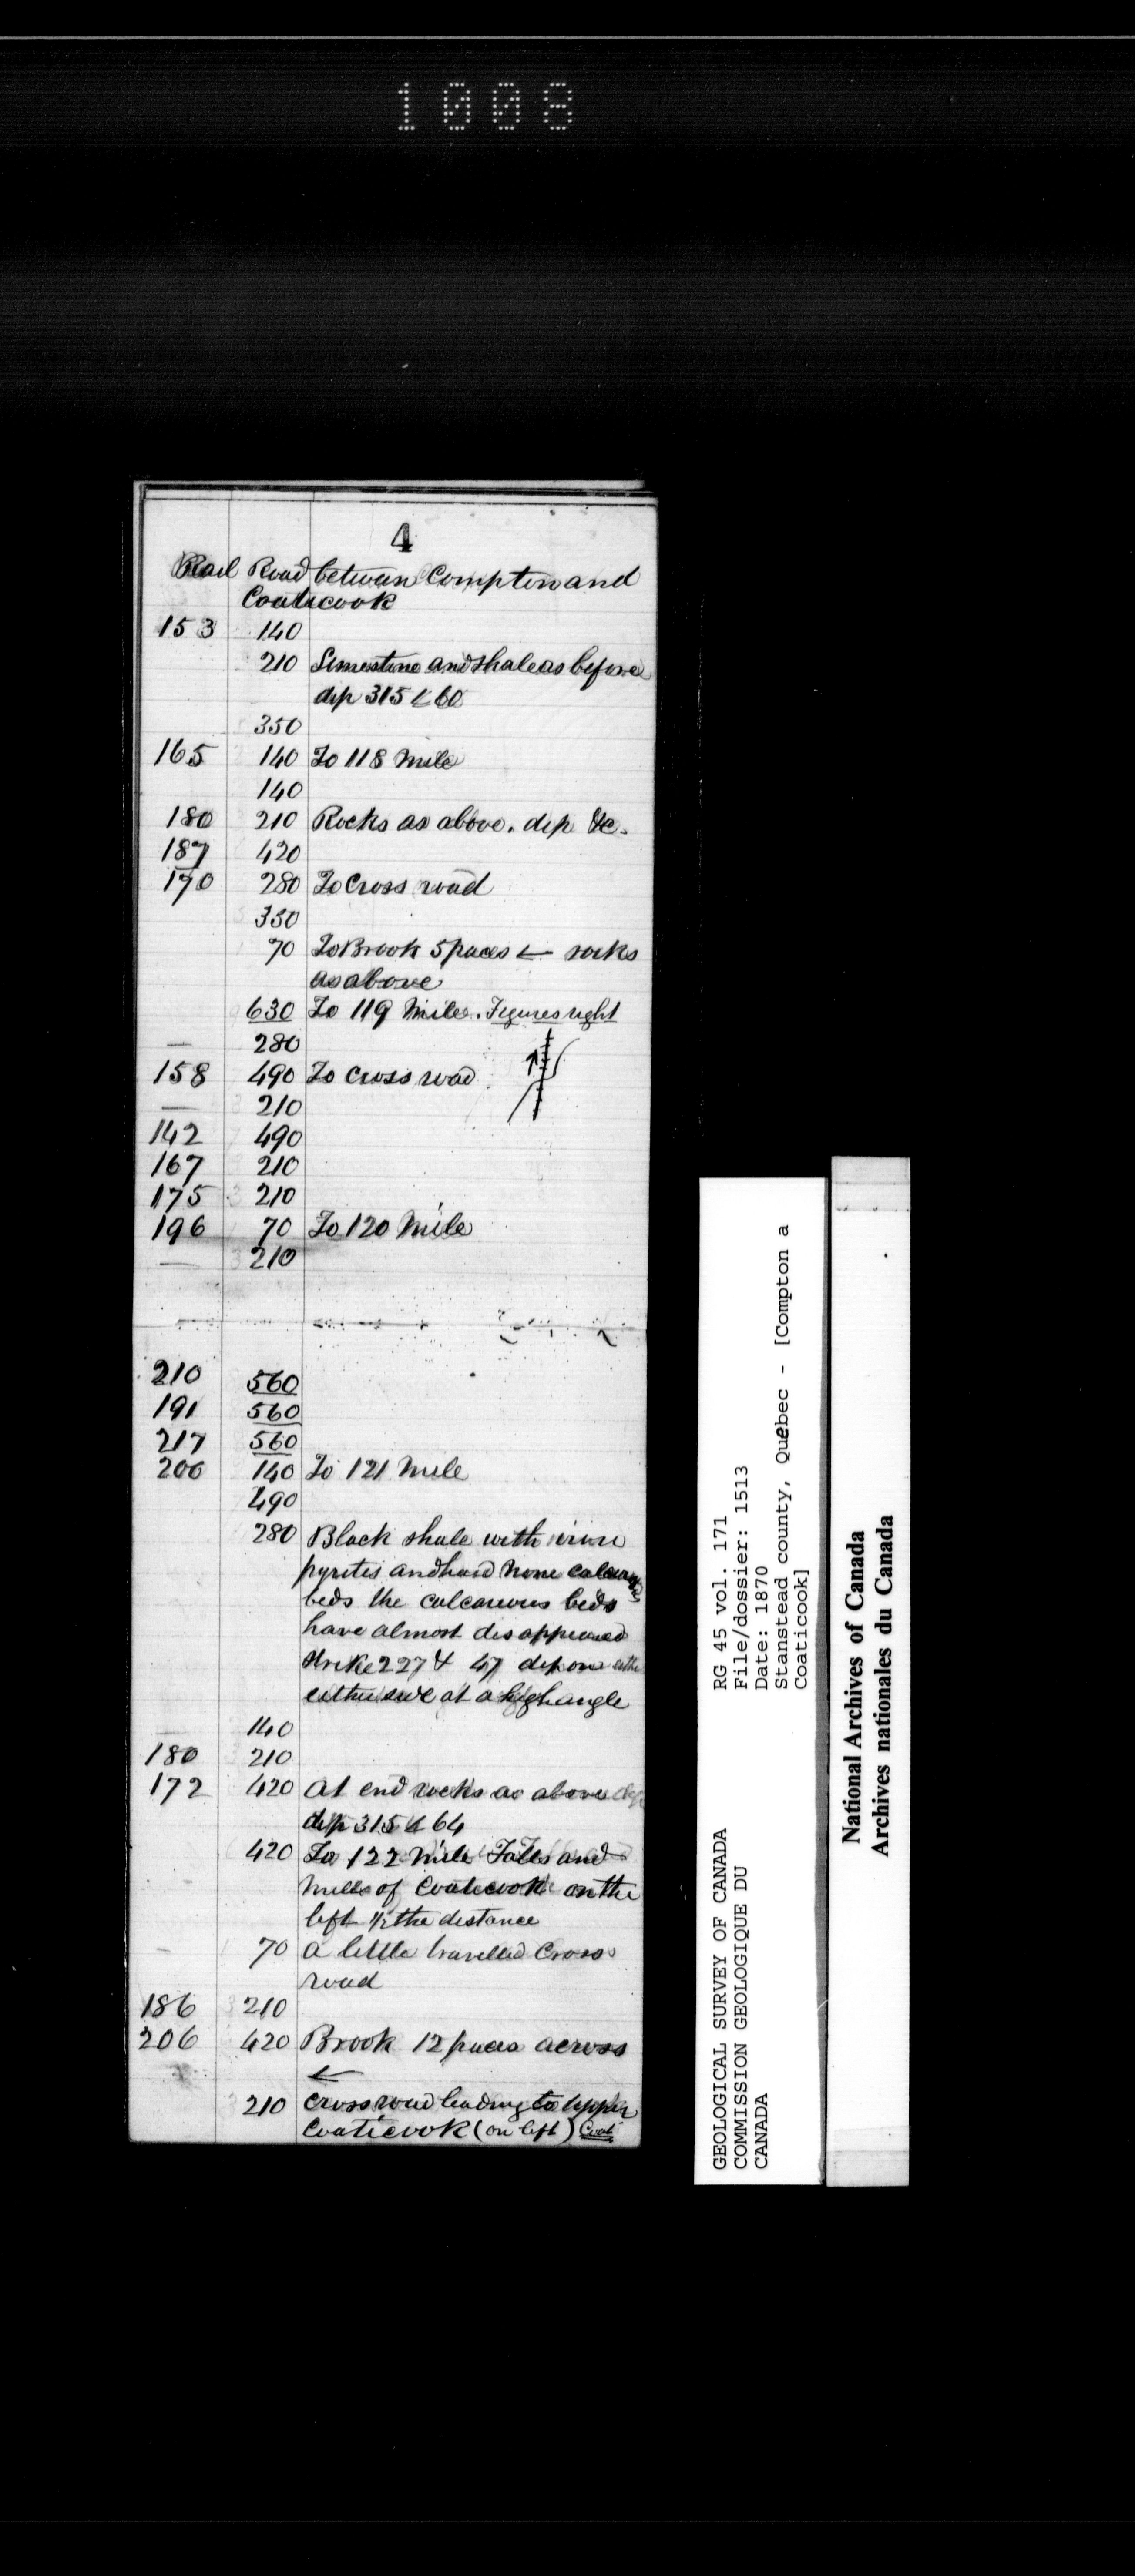 1008
4
Rail Road between Compton and
Coaticook
153 140
210 Limestone and shale as before
dip 315 < 60
350
165 140 To 118 Mile
140
180 210 Rocks as above. dip &c.
187 420
170 280 To Cross road
350
70 To Brook 5 paces ← rocks
as above
630 To 119 Mile. Figures right
— 280
158 490 To Cross road
— 210
142 490
167 210
175 210
196 70 To 120 Mile
— 210
210 560
191 560
217 560
200 140 To 121 Mile
490
280 Black shale with iron
pyrites and hard
beds the calcareous beds
have almost disappeared
strike 227 & 47 dip on
either side at a high angle
140
180 210
172 420 At end rocks as above
dip 315 < 64
420 To 122 Mile Falls and
Mills of Coaticook on the
left 1/2 the distance
— 70 A little travelled Cross
road
186 210
206 420 Brook 12 paces across
←
210 Cross road leading to upper
Coaticook (on left) Coat
GEOLOGICAL SURVEY OF CANADA RG 45 vol. 171
COMMISSION GEOLOGIQUE DU File/dossier: 1513
CANADA Date: 1870
Stanstead county, Québec - [Compton a
Coaticook]
National Archives of Canada
Archives nationales du Canada